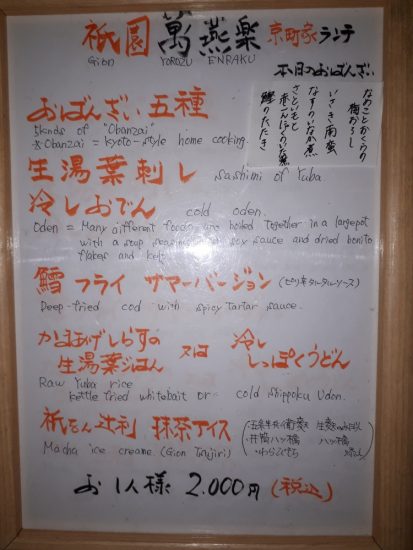 祇園 萬燕楽 京町家ランチ
Gion YOROZU ENRAKU
本日のおばんざい
なめことおくらの
梅おろし
いさき南蛮
なすのいなか煮
さといもと
鰹のたたき
おばんざい五種
5kinds of "Obanzai"
※Obanzai = kyoto-style home cooking.
生湯葉刺し sashimi of Yuba
冷しおでん cold oden.
Oden = Many different foods are boiled together in a large pot
with a soup seasoned with soy sauce and dried bonito
flakes and kelp
鱈フライ サマーバージョン (ピリ辛タルタルソース)
Deep-fried cod with spicy tartar sauce.
かまあげしらすの
生湯葉ごはん 又は 冷し
しっぽくうどん
Raw Yuba rice
kettle fried whitebait or cold shippoku Udon.
祇をん辻利 抹茶アイス
Macha ice creame. (Gion Tsujiri)
お1人様 2.000円 (税込)